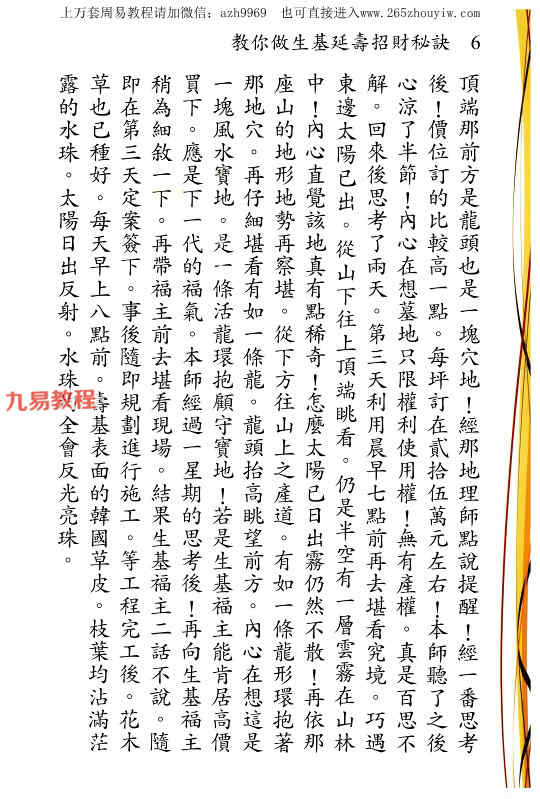 上万套周易教程请加微信：azh9969 也可直接进入www.265zhouyiw.com
教你做生基延壽招財秘訣 6
頂端那前方是龍頭也是一塊穴地！經那地理師點說提醒！經一番思考
後！價位訂的比較高一點。每坪訂在貳拾伍萬元左右！本師聽了之後
心涼了半節！內心在想墓地只限權利使用權！無有產權。真是百思不
解。回來後思考了兩天。第三天利用晨早七點前再去堪看究境。巧遇
東邊太陽已出。從山下往上頂端眺看。仍是半空有一層雲霧在山林
中！內心直覺該地真有點稀奇！怎麼太陽已日出霧仍然不散！再依那
座山的地形地勢再察堪。從下方往山上之產道。有如一條龍形環抱著
那地穴。再仔細堪看有如一條龍。龍頭抬高眺望前方。內心在想這是
一塊風水寶地。是一條活龍環抱顧守寶地！若是生基福主能肯居高價
買下。應是下一代的福氣。本師經過一星期的思考後！再向生基福主
稍為細敘一下。再帶福主前去堪看現場。結果生基福主二話不說。隨
即在第三天定案簽下。事後隨即規劃進行施工。等工程完工後。花木
草也已種好。每天早上八點前。壽基表面的韓國草皮。枝葉均沾滿茫
露的水珠。太陽日出反射。水珠全會反光亮珠。
九易教程